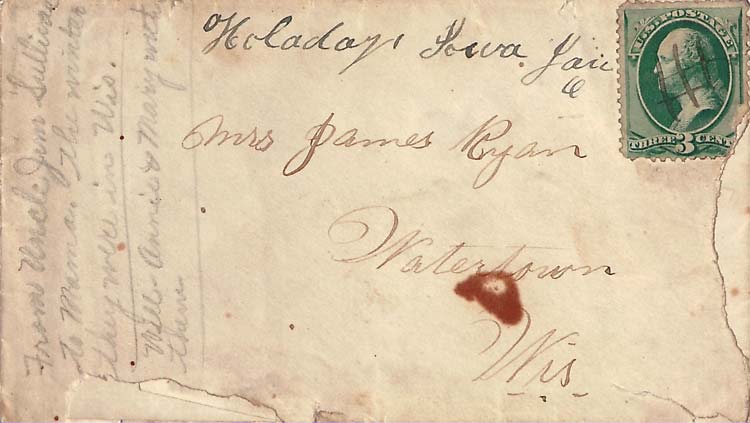 Holaday's Iowa Jan
6
Mrs James Ryan
Watertown
Wis
U.S. POSTAGE
THREE 3 CENTS
From Uncle Jim Sullivan
to Maman the winter
they were in Wis.
Nell Annie & Mary with
them